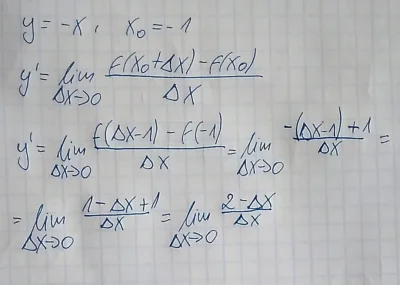 y = -x, x₀ = -1
y' = lim Δx→0 (f(x₀+Δx) - f(x₀)) / Δx
y' = lim Δx→0 (f(Δx-1) - f(-1)) / Δx = lim Δx→0 (-(Δx-1)+1) / Δx =
= lim Δx→0 (1-Δx+1) / Δx = lim Δx→0 (2-Δx) / Δx